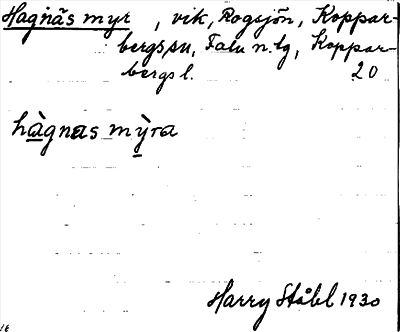 Hagnäs myr, vik, Rogsjön, Koppar-
bergs sn, Falu n. tg, Koppar-
bergs l. 20
hàgnas mỳra
Harry Ståhl 1930